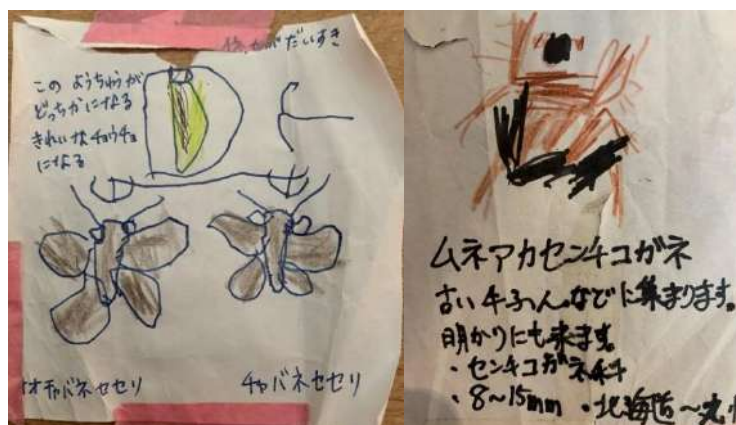 がだいすき
この ようちゅうが
どっちかになる
きれいなチョウチョ
になる
オオチャバネセセリ
チャバネセセリ
ムネアカセンチコガネ
古い牛ふんなどに集まります。
明かりにも来ます。
・センチコガネ科
・8～15mm ・北海道～九州